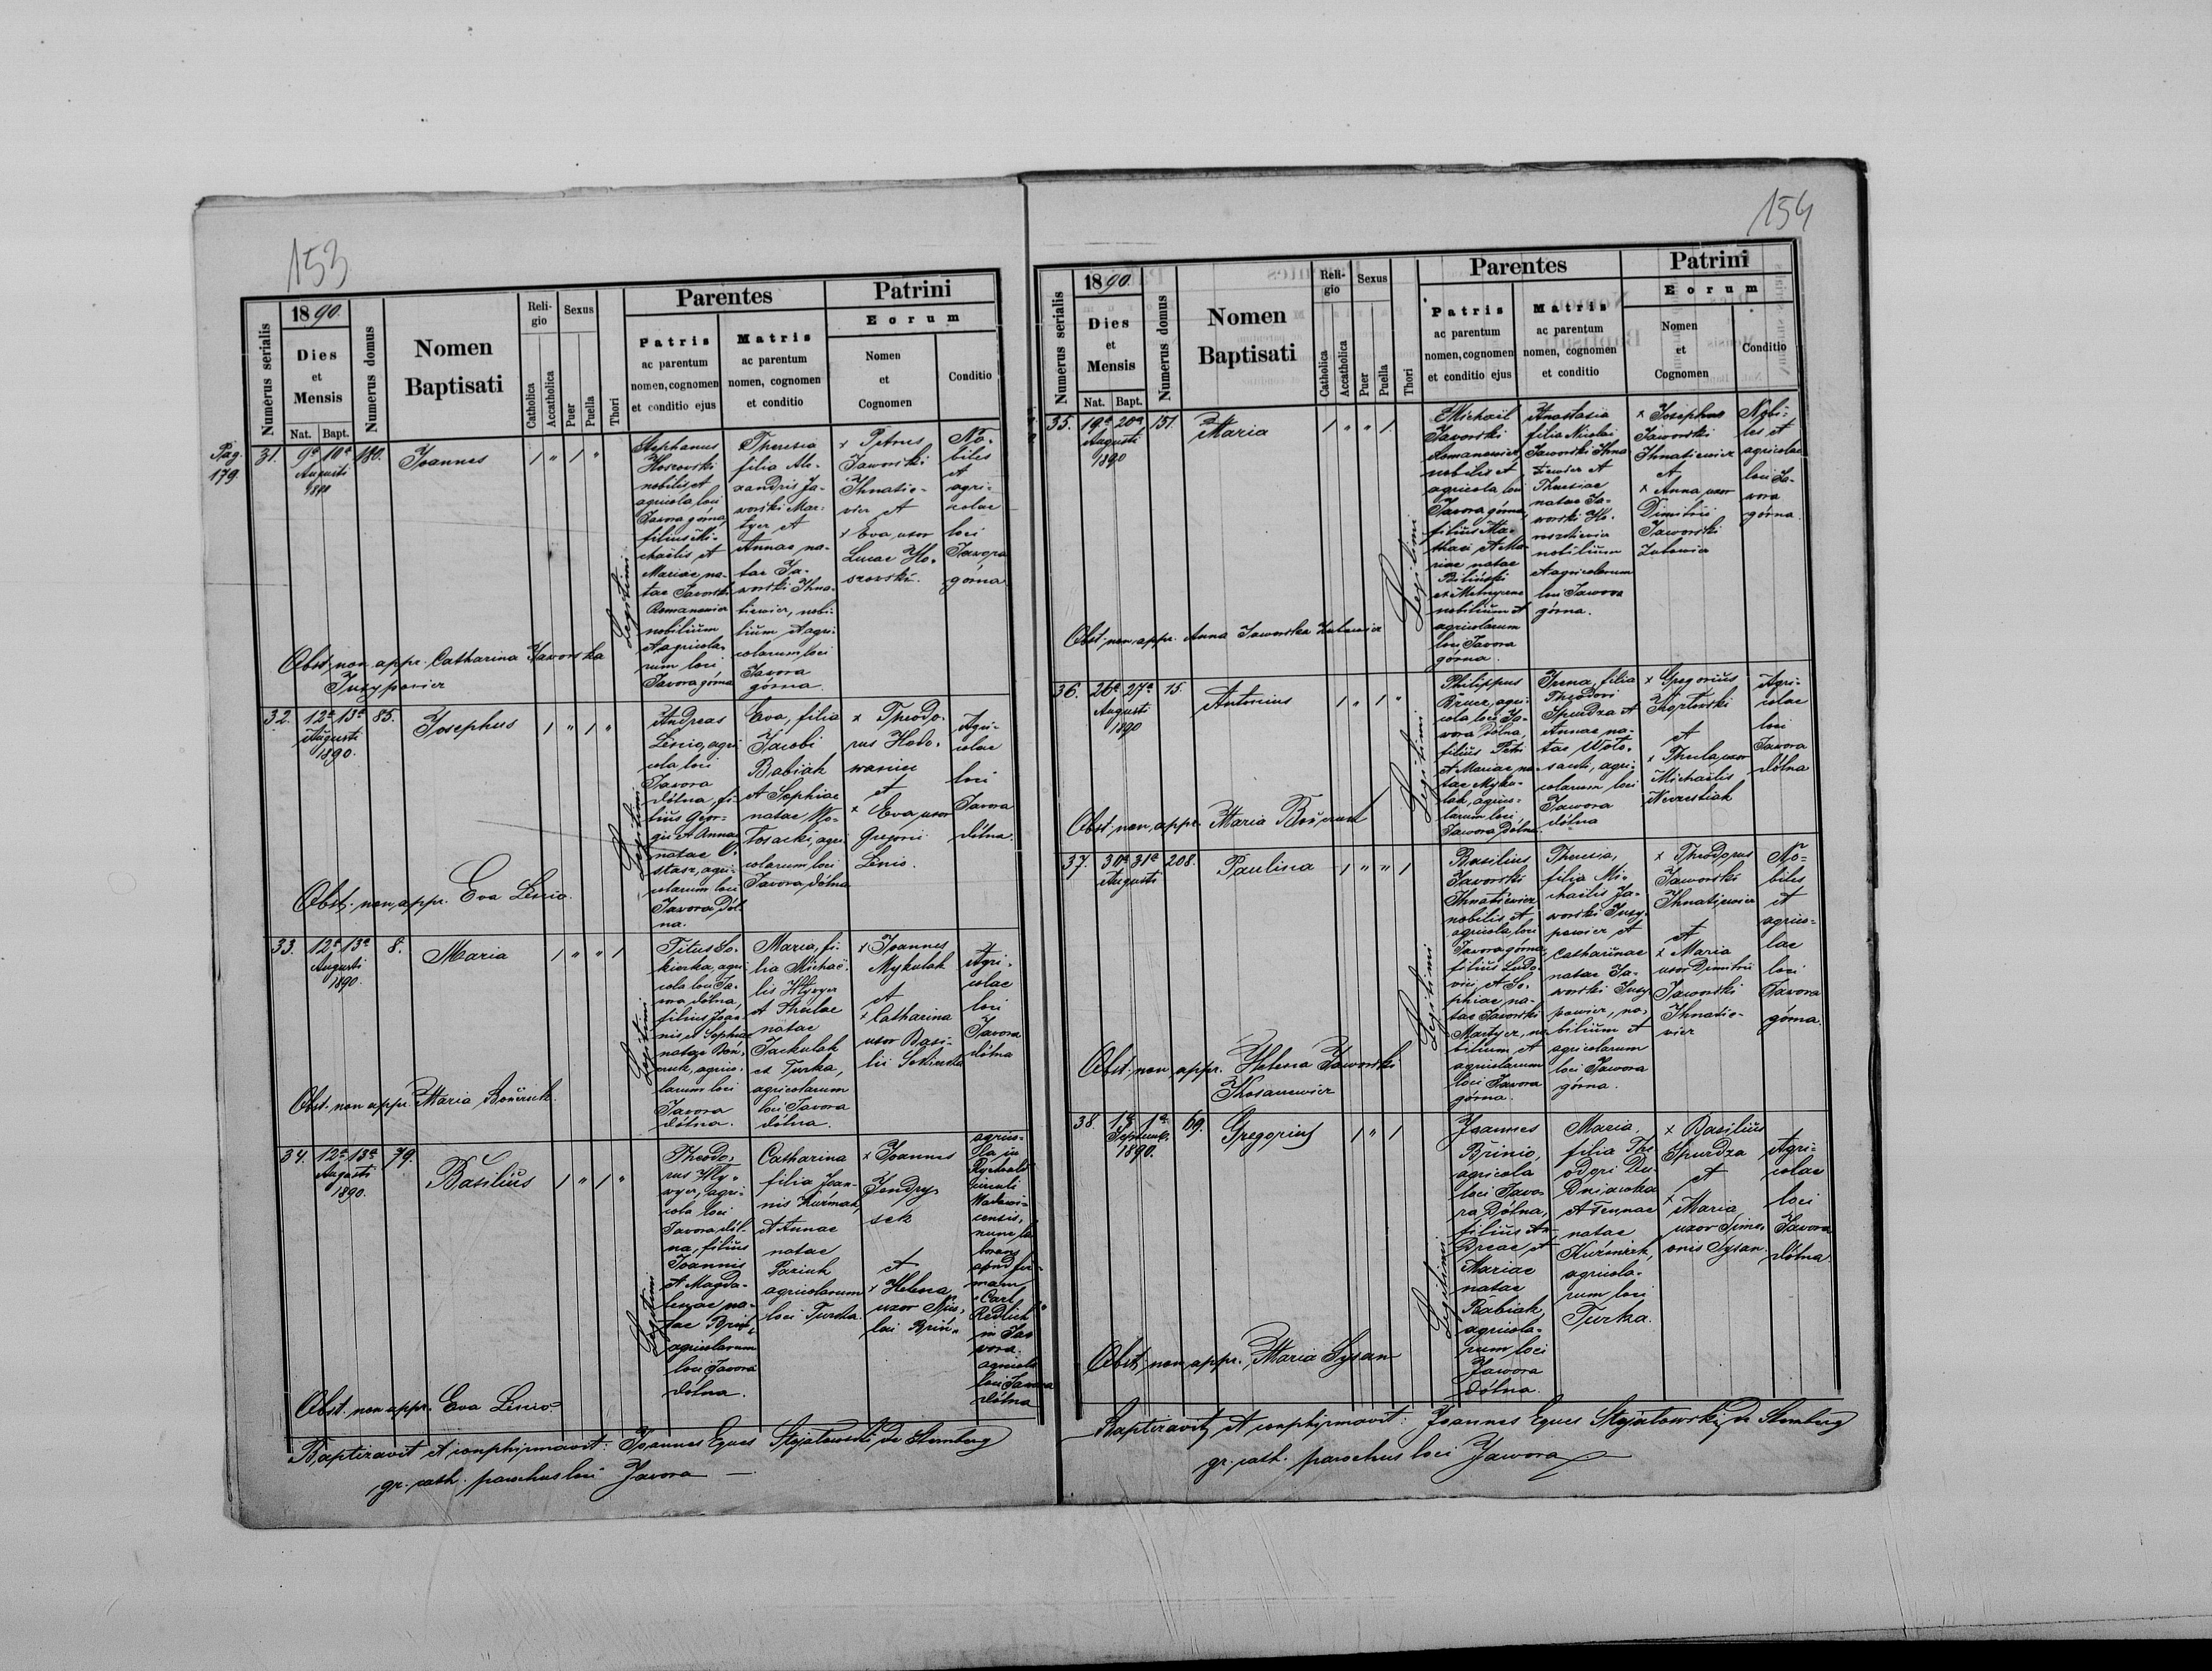 153
Pag.
179.
Numerus serialis
1890.
Dies
et
Mensis
Nat. Bapt.
Numerus domus
Nomen
Baptisati
Reli-
gio
Catholica
Accatholica
Sexus
Puer
Puella
Thori
Parentes
Patris
ac parentum
nomen, cognomen
et conditio ejus
Matris
ac parentum
nomen, cognomen
et conditio
Patrini
Eorum
Nomen
et
Cognomen
Conditio
31.
9a 10a
Augusti
1890
180.
Joannes
1 " 1 "
Legitimi
Stephanus
Hoszowski
nobilis et
agricola loci
Javora górna,
filius Mi-
chaelis et
Mariae na-
tae Javorski
Romanowicz
nobilium
et agricola-
rum loci
Javora górna
Theresia
filia Ale-
xandris Ja-
worski Mar-
tycz et
Annae na-
tae Ja-
worski Ihna-
tiewicz, nobi-
lium et agri-
colarum loci
Javora
górna.
x Petrus
Jaworski
Ihnatie-
vicz et
x Eva, uxor
Lucae Ho-
szowski.
No-
biles
et
agri-
colae
loci
Javora
górna
Obst. non appr. Catharina Javorska
Juzypovicz
32.
12a 13a
Augusti
1890.
85.
Josephus
1 " 1 "
Legitimi
Andreas
Lenio, agri-
cola loci
Javora
dólna, fi-
lius Geor-
gii et Annae
natae O-
stasz, agri-
colarum loci
Javora dól-
na.
Eva, filia
Jacobi
Babiak
et Sophiae
natae Wo-
losacki, agri-
colarum loci
Javora dólna
x Theodo-
rus Hodo-
waniec
et
x Eva uxor
Gregorii
Lenio.
Agri-
colae
loci
Javora
dólna.
Obst. non appr. Eva Lenio.
33.
12a 13a
Augusti
1890.
8.
Maria
1 " " 1
Legitimi
Titus So-
kirka, agri-
cola loci Ja-
vora dólna,
filius Joan-
nis et Sophiae
natae
agrico-
larum loci
Javora
dólna.
Maria, fi-
lia Michaë-
lis Hływyer
et Theclae
natae
Jackulak
ex Turka,
agricolarum
loci Javora
dólna.
x Joannes
Mykulak
et
x Catharina
uxor Basi-
lii
Agri-
colae
loci
Javora
dólna
Obst. non appr. Maria
34.
12a 13a
Augusti
1890.
79.
Basilius
1 " 1 "
Legitimi
Theodo-
rus Hły-
wyer, agri-
cola loci
Javora dól-
na, filius
Joannis
et Magda-
lenae na-
tae
agricolarum
loci Javora
dólna.
Catharina
filia Joan-
nis Kuźmiak
et Annae
natae
Paziuk
agricolarum
loci Turka.
x Joannes
Jendry-
sek
et
x Helena
uxor Nico-
lai
agrico-
la in
Rychwałd
circuli
Wadowi-
censis,
nunc la-
borans
apud fir-
mam
"Carl
Redlich"
in Ja-
vora.
agricola
loci Javora
dólna
Obst. non appr. Eva Lenio.
Baptizavit et conphirmavit: Joannes Eques Stojalowski de Sternberg
gr. cath. parochus loci Javora
154
Numerus serialis
1890.
Dies
et
Mensis
Nat. Bapt.
Numerus domus
Nomen
Baptisati
Reli-
gio
Catholica
Accatholica
Sexus
Puer
Puella
Thori
Parentes
Patris
ac parentum
nomen, cognomen
et conditio ejus
Matris
ac parentum
nomen, cognomen
et conditio
Patrini
Eorum
Nomen
et
Cognomen
Conditio
35.
19a 20a
Augusti
1890
151.
Maria
1 " " 1.
Legitimi
Michael
Javorski
Romanowicz,
nobilis et
agricola loci
Javora górna,
filius Ma-
thaei et Ma-
riae natae
Biliński
nobilium et
agricolarum
loci Javora
górna.
Anastasia
filia Nicolai
Jaworski Ihna-
tiewicz et
Theresiae
natae Ja-
worski
nobilium
et agricolarum
loci Jawora
górna.
x Josephus
Jaworski
Ihnatiewicz
et
x Anna uxor
Dimitrii
Jaworski
Zutowicz
Nobi-
les et
agricolae
loci Ja-
vora
górna.
Obst. non appr. Anna Jaworska Zutowicz
36.
26a 27a
Augusti
1890
15.
Antonius
1 " 1 "
Legitimi
Philippus
agri-
cola loci Ja-
vora dólna,
filius Petri
et Mariae na-
tae Myku-
lak, agrico-
larum loci
Javora dólna.
Irena, filia
Theodori
Spurdza et
Annae na-
tae Woło-
sacki, agri-
colarum loci
Jawora
dólna
x Gregorius
et
x Thecla, uxor
Michaëlis
Agri-
colae
loci
Javora
dólna
Obst. non appr. Maria
37.
30a 31a
Augusti
208.
Paulina
1 " " 1
Legitimi
Basilius
Javorski
Ihnatiewicz
nobilis et
agricola, loci
Javora górna,
filius Ludo-
vici et So-
phiae, na-
tae Javorski
Martycz, no-
bilium et
agricolarum
loci Javora
górna.
Theresia,
filia Mi-
chaëlis Ja-
worski Juzy-
powicz et
Catharinae
natae Ja-
worski Juzy-
powicz, no-
bilium et
agricolarum
loci Jawora
górna.
x Theodorus
Jaworski
Ihnatiewicz
et
x Maria
uxor Dimitrii
Jaworski
Ihnatie-
vicz
No-
biles
et
agrico-
lae
loci
Javora
górna.
Obst. non appr. Helena Jaworski
Kosanowicz
38.
1a 1a
Septemb.
1890.
69.
Gregorius
1 " 1
Legitimi
Joannes
agricola
loci Javo-
ra dólna,
filius An-
dreae et
Mariae
natae
Babiak,
agricola-
rum loci
Jawora
dólna.
Maria,
filia The-
odori
natae
Kuźmiak,
agricola-
rum loci
Turka.
x Basilius
Spurdza
et
x Maria
uxor Sime-
onis Sysan
Agri-
colae
loci
Javora
dólna.
Obst. non appr. Maria Sysan
Baptizavit et conphirmavit: Joannes Eques Stojalowski de Sternberg
gr. cath. parochus loci Jawora